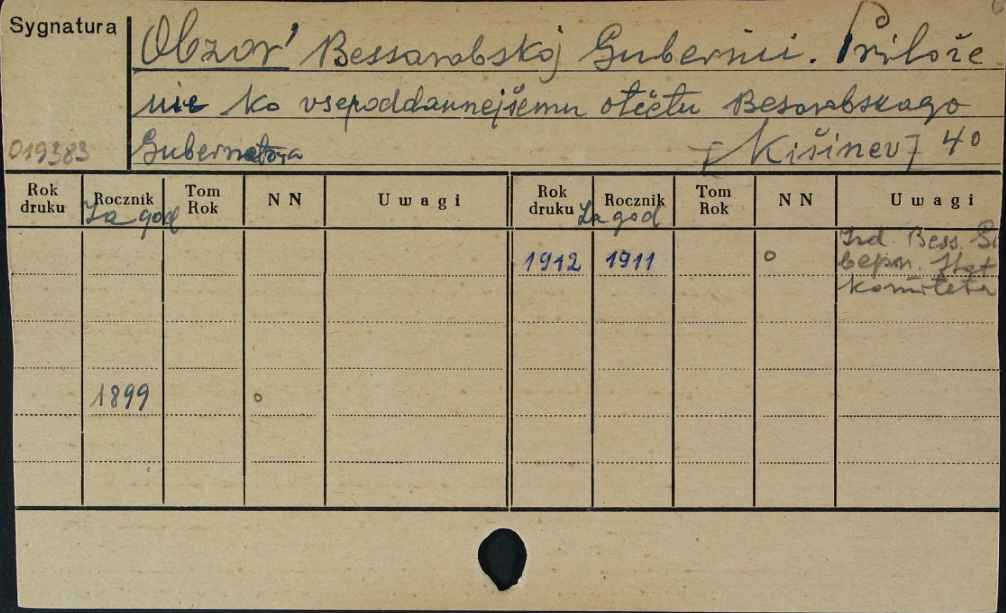 Sygnatura
Obzor' Bessarabskoj Gubernii. Priloże
nie ko vsepoddannejšemu otčëtu Besarabskago
019383 Gubernatora [Kišinev] 4°
Rok druku Rocznik Tom Rok N N Uwagi Rok druku Rocznik Tom Rok N N Uwagi
Za god Za god
1912 1911 o Izd. Bess. Gu
берn. Stat
Komiteta
1899 o